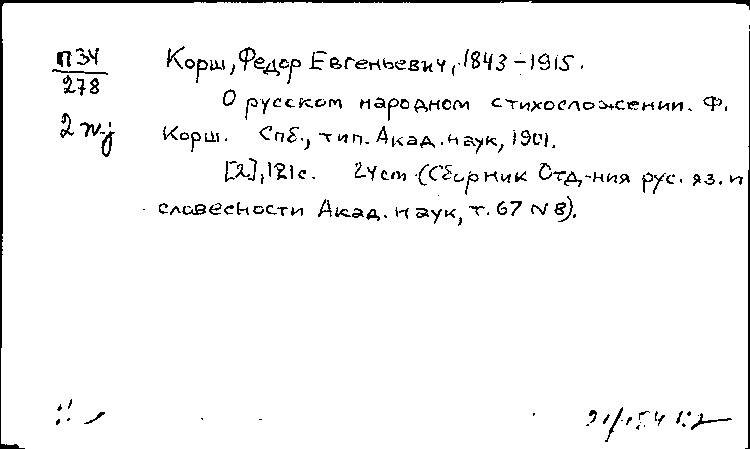 П 34 Корш, Федор Евгеньевич, 1843-1915.
278 О русском народном стихосложении. Ф.
Корш. Спб., тип. Акад. наук, 1901.
[2], 121 с. 24 cm (Сборник Отд-ния рус. яз. и
словесности Акад. наук, т. 67 N 8).